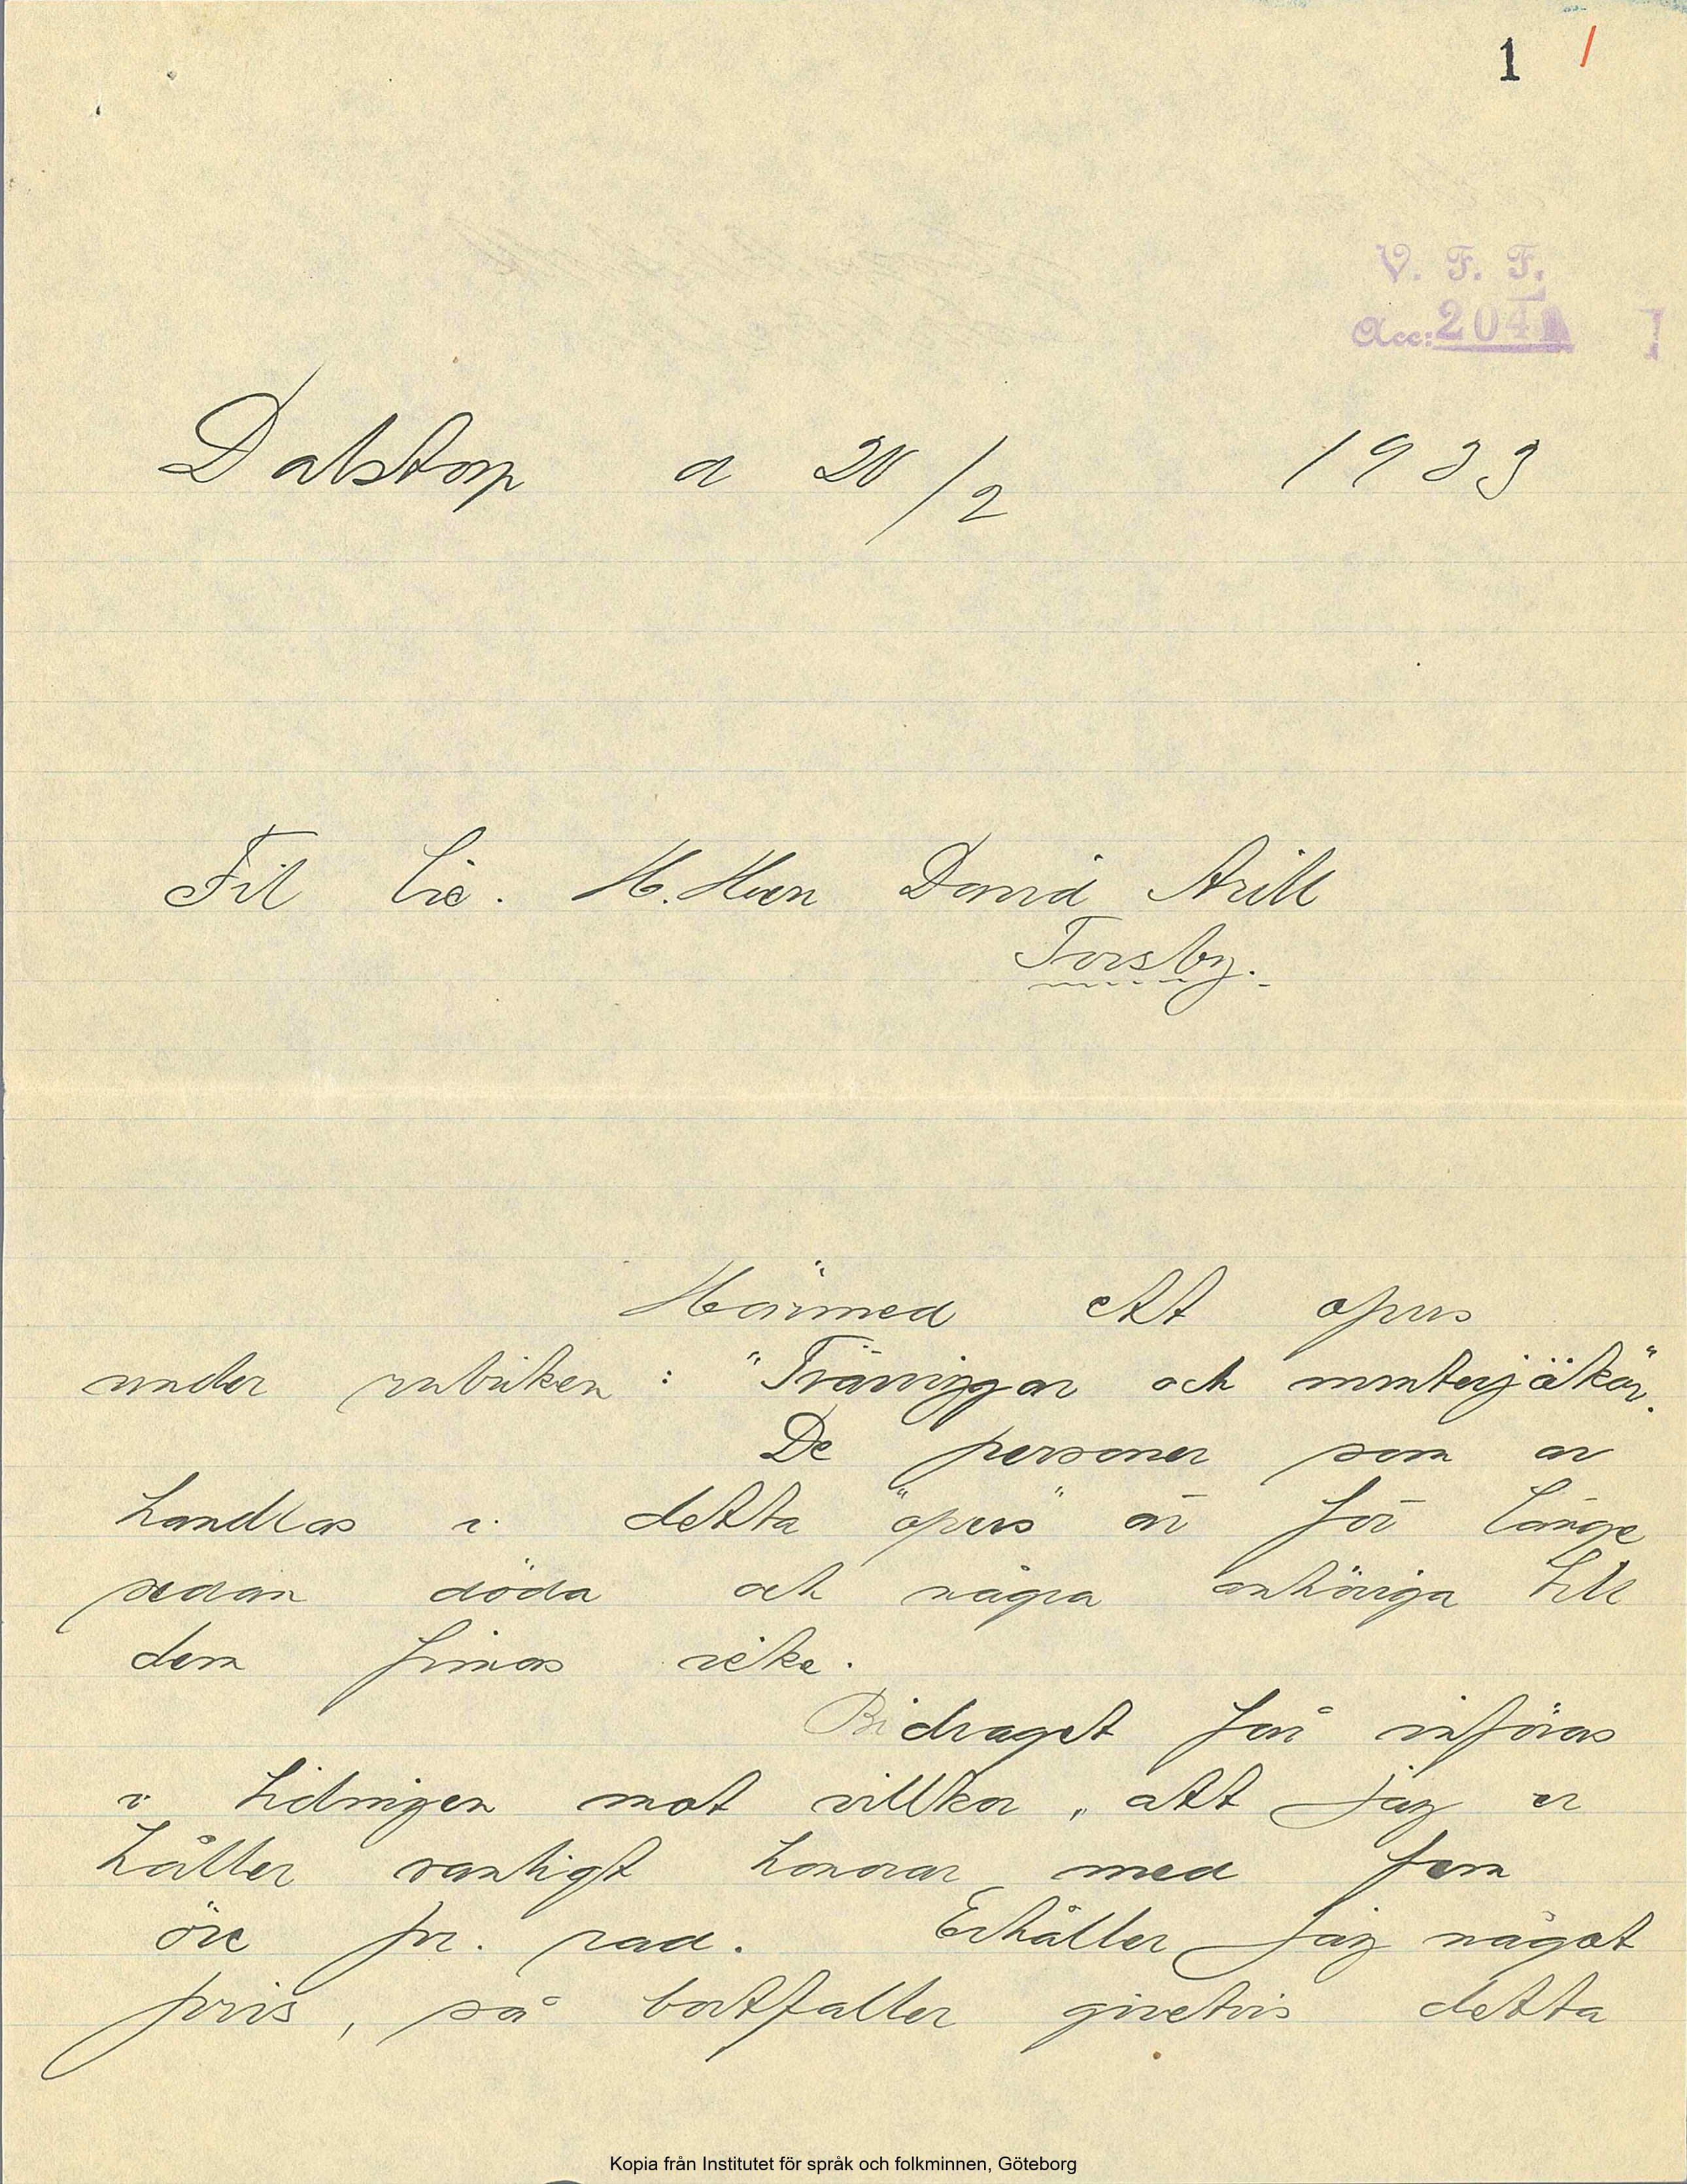 1 /
V. F. F.
Acc: 204 1
Dalstorp d 20/2 1933
Fil Lic. H. Herr David Arill
Torsby.
Härmed ett opus
under rubriken : "Träringar och munterjökar".
De personer som av
handlas i detta "opus" är för länge
sedan döda och några anhöriga till
dem finnas icke.
Bidraget får införas
i tidningen mot villkor, att jag er
håller vanligt honorar med fem
öre pr. rad. Erhåller jag något
pris, så bortfaller givetvis detta
Kopia från Institutet för språk och folkminnen, Göteborg